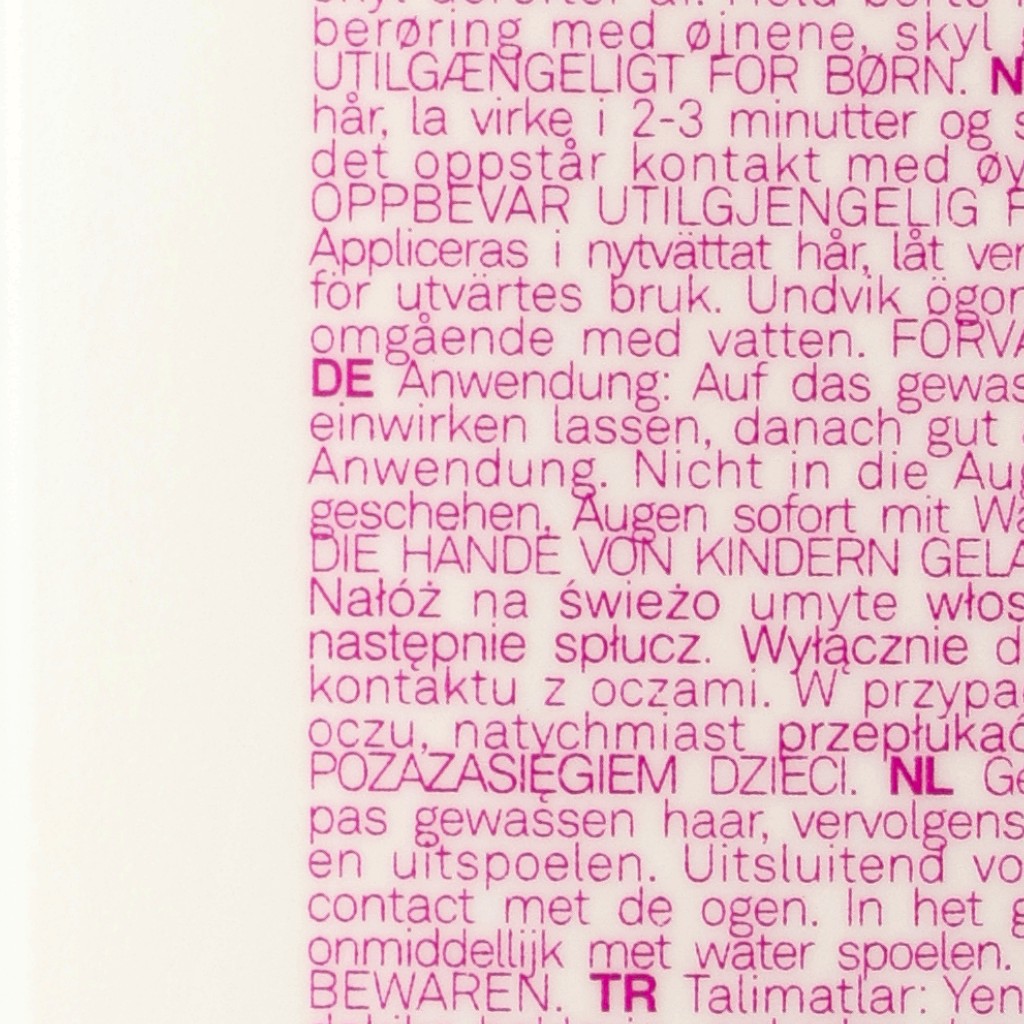 berøring med øjnene, skyl
UTILGÆNGELIGT FOR BØRN.
hår, la virke i 2-3 minutter og
det oppstår kontakt med
OPPBEVAR UTILGJENGELIG
Appliceras i nytvättat hår, låt
för utvärtes bruk. Undvik
omgående med vatten.
DE Anwendung: Auf das
einwirken lassen, danach gut
Anwendung. Nicht in die
geschehen, Augen sofort mit
DIE HÄNDE VON KINDERN
Nałóż na świeżo umyte
następnie spłucz. Wyłącznie
kontaktu z oczami. W
oczu, natychmiast
POZAZASIĘGIEM DZIECI. NL
pas gewassen haar, vervolgens
en uitspoelen. Uitsluitend
contact met de ogen. In het
onmiddellijk met water spoelen.
BEWAREN. TR Talimatlar: